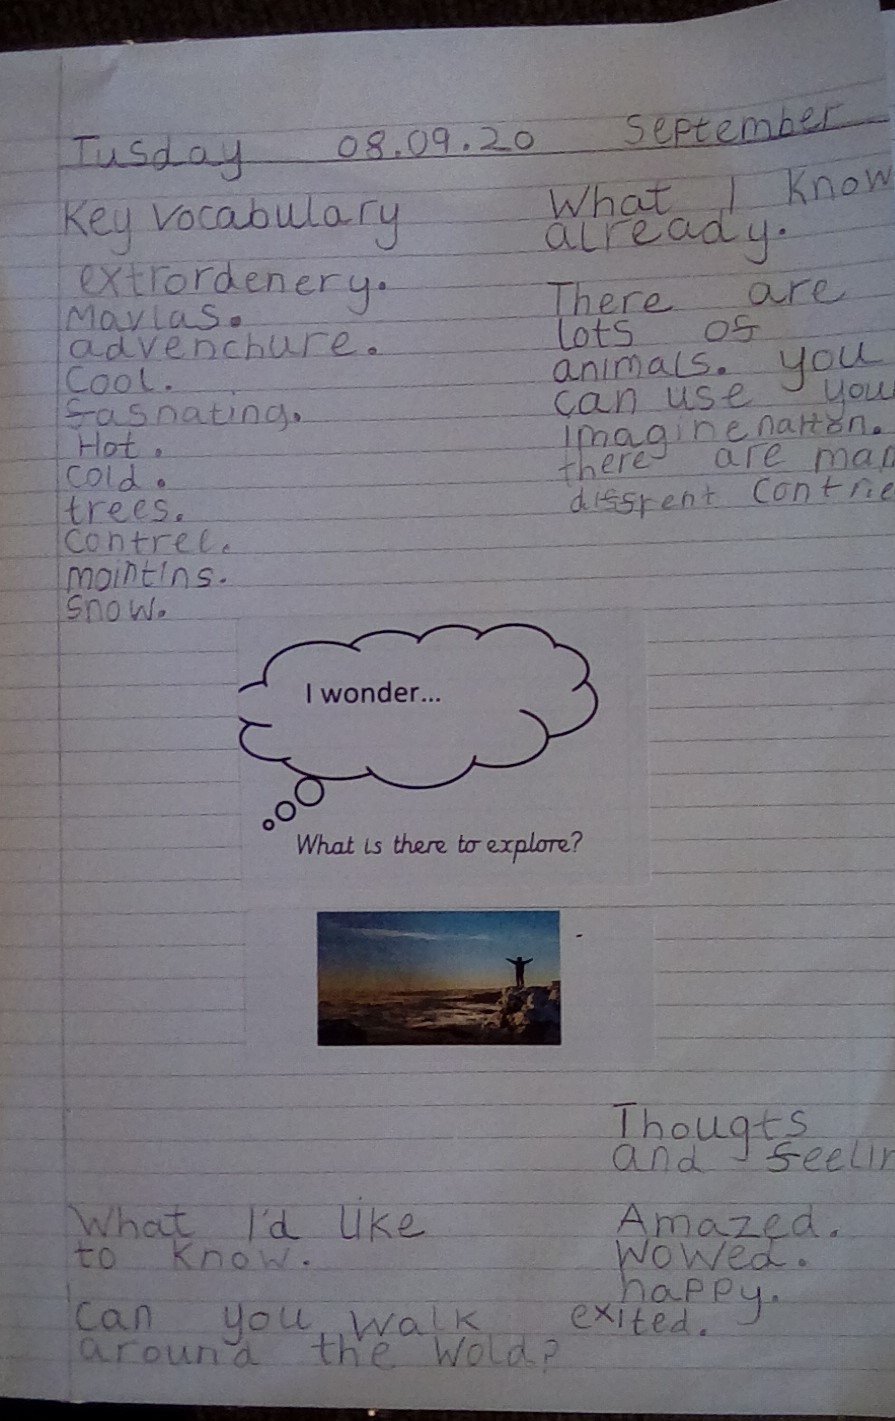 Tusday 08.09.20 September
Key vocabulary
extrordenery.
Mavlas.
advenchure.
Cool.
fasnating.
Hot.
cold.
trees.
contree.
mointins.
snow.
What I know
already.
There are
lots of
animals. you
can use you
imaginenation.
there are man
diffrent contrie
I wonder...
What is there to explore?
Thougts
and feelin
Amazed.
Wowed.
happy.
exited.
What I'd like
to know.
can you walk
around the wold?